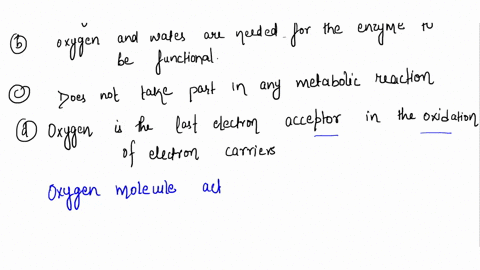 (b) oxygen and wates are needed for the enzyme to
be functional.
(c) Does not take part in any metabolic reaction
(d) Oxygen is the last electron acceptor in the oxidation
of electron carriers
Oxygen molecule act